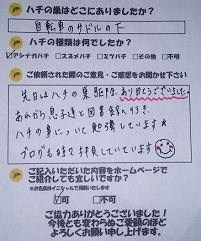 ハチの巣はどこにありましたか？
自転車のサドルの下
ハチの種類は何でしたか？
☑アシナガバチ □スズメバチ □ミツバチ □その他 □不明
ご依頼された際のご意見・ご感想をお聞かせ下さい
先日はハチの巣駆除、ありがとうございました。
あれから息子達と図書館へ行き、
ハチの事について勉強しています☆
ブログも時々拝見しています
ご記入いただいた内容をホームページで
ご紹介しても宜しいですか？
※お名前はイニシャルで掲載いたします
☑可 □不可
ご協力ありがとうございました！
今後とも変わらぬご愛顧のほど
よろしくお願い申し上げます。